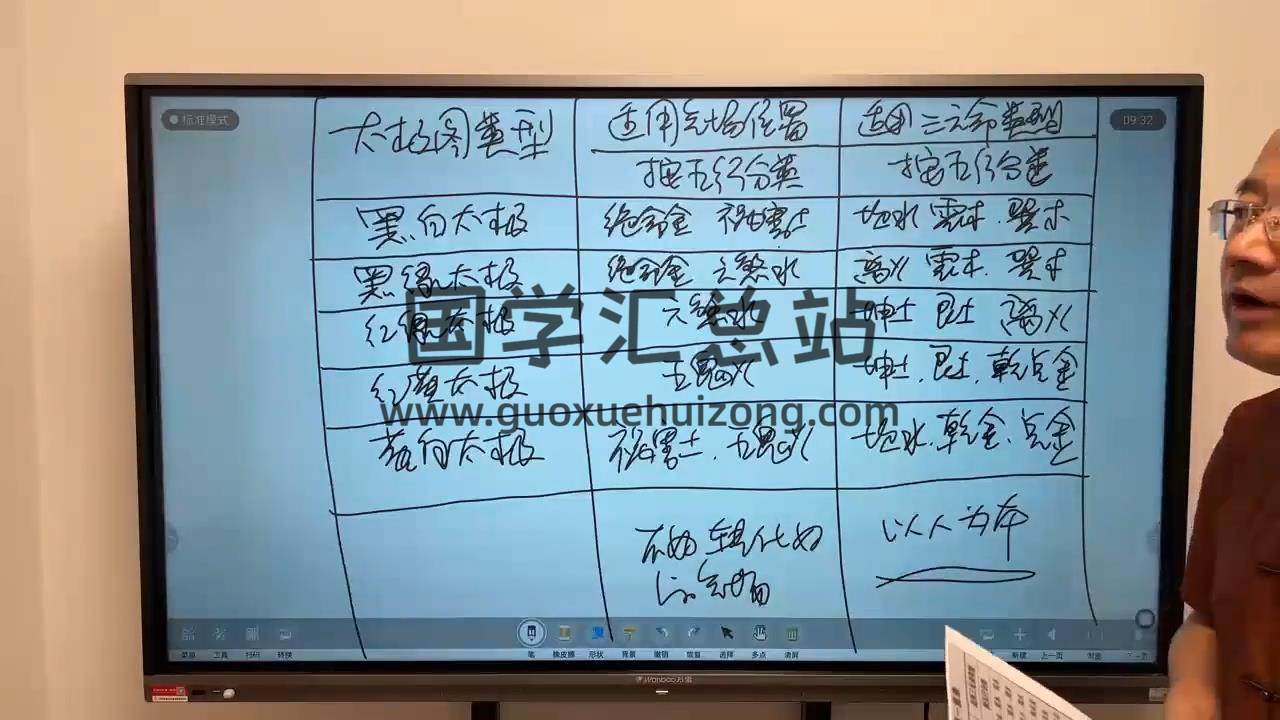 标准模式
09:32
太极图类型 适用气场位置 适用三元命类型
按五行分类 按五行分类
黑白太极 绝命金 祸害土 坎水 震木、巽木
黑绿太极 绝命金 六煞水 离火 震木、巽木
红绿太极 六煞水 坤土 艮土 离火
红黄太极 五鬼火 坤土、艮土、乾兑金
黄白太极 祸害土、五鬼火 坎水、乾金、兑金
不好 转化好 以人为本
的气场
国学汇总站
www.guoxuehuizong.com
菜单 工具 扫码 转换 笔 橡皮擦 形状 背景 撤销 恢复 选择 多点 清屏 新建 上一页
Wanbao万宝